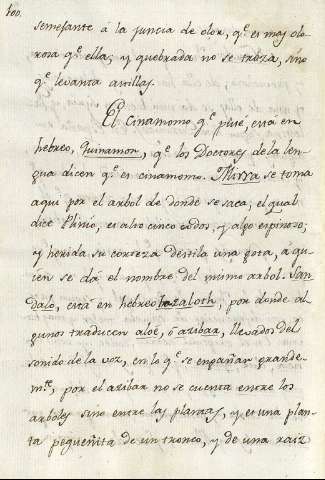 100.
semejante á la juncia de olor, q.e es mas olo-
rosa q.e ellas, y quebrada no se troza, sino
q.e levanta astillas.
El cinamomo q.e puse, está en
hebreo, Quinamon, q.e los Doctores de la len-
gua dicen q.e es cinamomo. Mirra se toma
aqui por el arbol de donde se saca; el qual
dice Plinio, es alto cinco codos, y algo espinoso;
y herida su corteza destila una gota, á qu-
ien se dá el nombre del mismo arbol. San-
dalo, está en hebreo hazaloth, por donde al-
gunos traducen aloë, ó azibar, llevados del
sonido de la voz, en lo q.e se engañan grande-
m.te, por el azibar no se cuenta entre los
arboles sino entre las plantas, y es una plan-
ta pequeñita de un tronco, y de una raiz